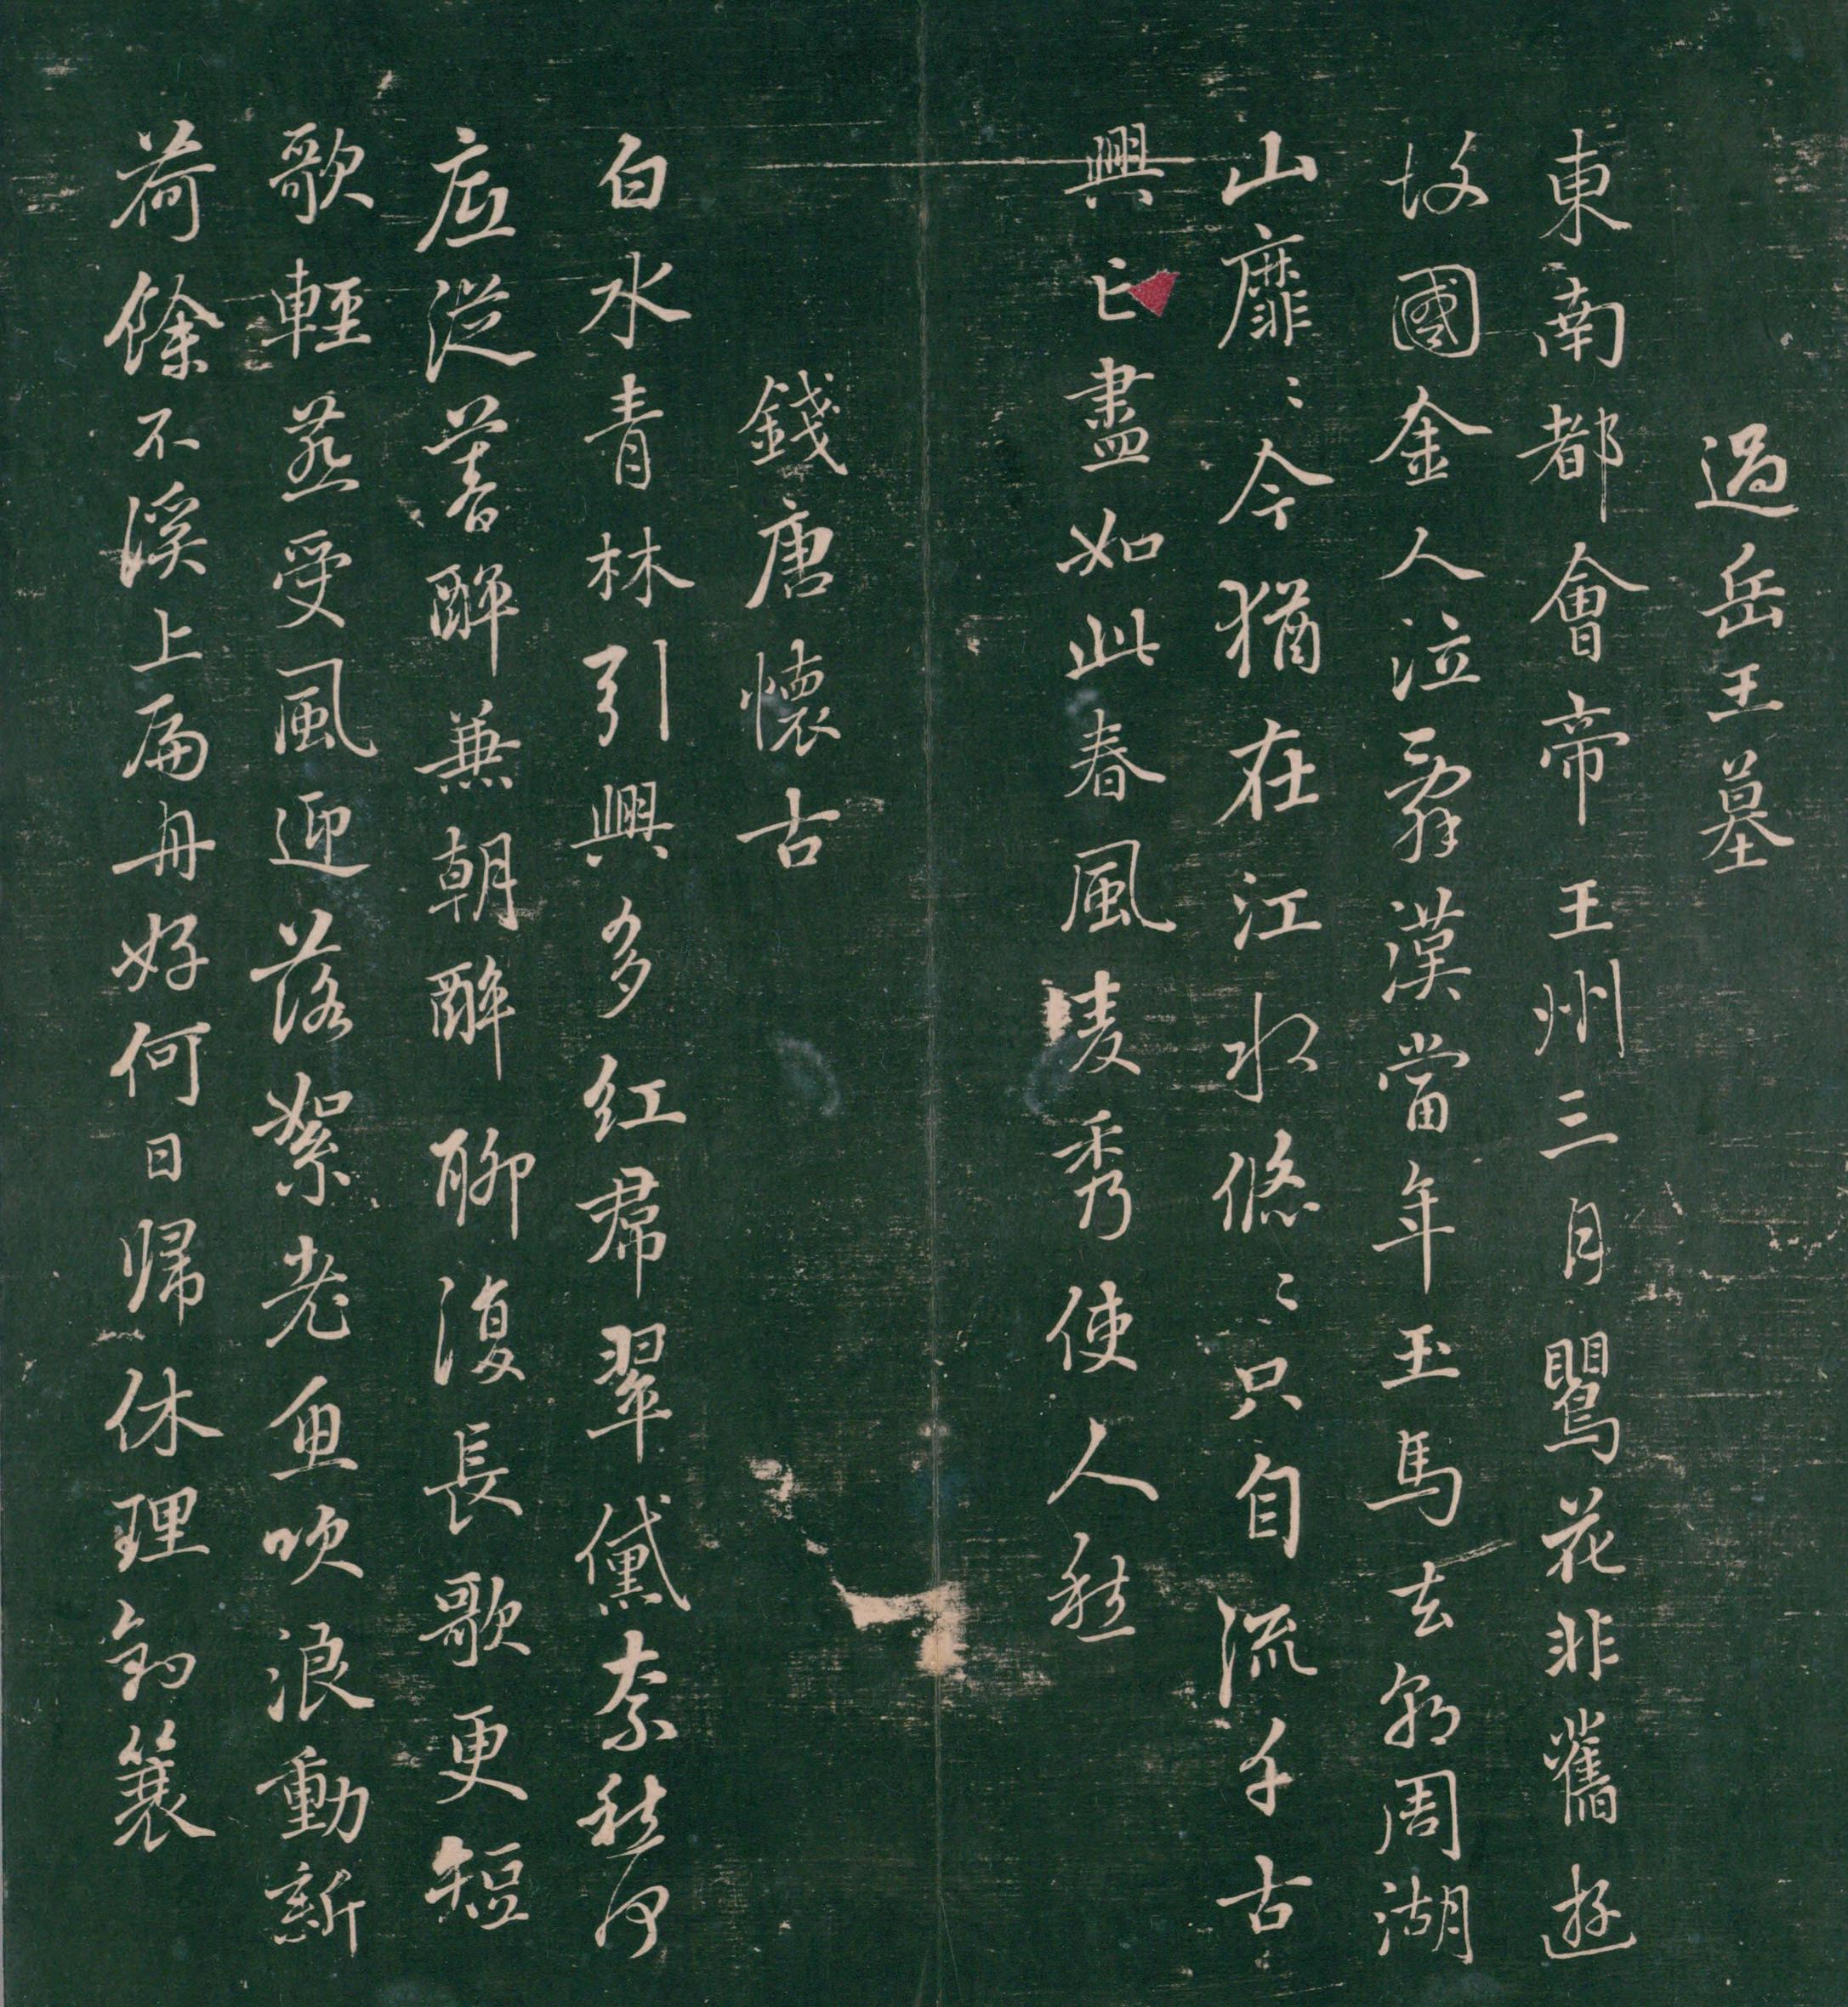 過岳王墓
東南都會帝王州三月鸎花非舊遊
故國金人泣辞漢當年玉馬去朝周湖
山靡〻今猶在江水悠〻只自流千古
興亡盡如此春風麦秀使人愁
錢唐懷古
白水青林引興多紅帬翠黛奈愁何
底從暮醉兼朝醉聊復長歌更短
歌輕燕受風迎落絮老魚吹浪動新
荷餘不溪上扁舟好何日帰休理釣簑